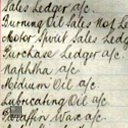 Sales Ledger a/c.
Burning Oil Sales Not Le
Motor Spirit Sales Ledg
Purchase Ledger a/c.
Naphtha a/c
Iridium Oil a/c.
Lubricating Oil a/c
Paraffin Wax a/c.